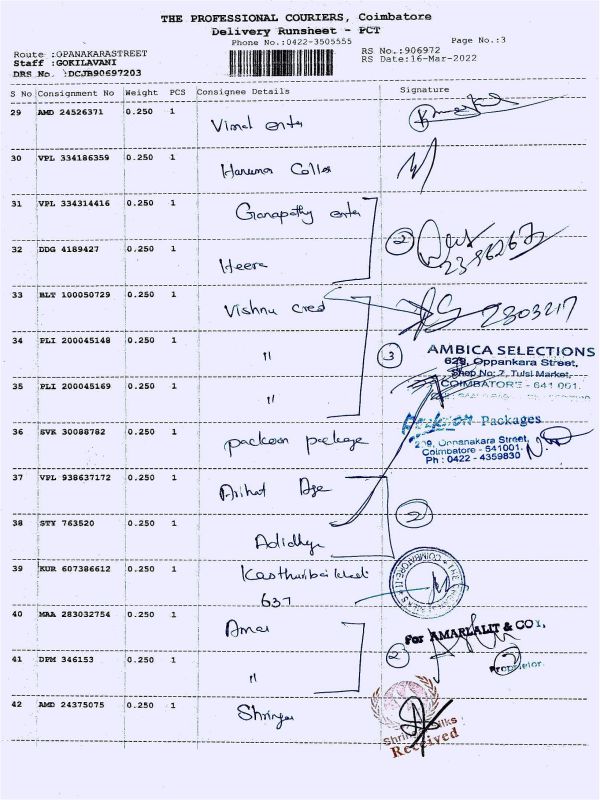 THE PROFESSIONAL COURIERS, Coimbatore
Delivery Runsheet - PCT
Phone No.:0422-3505555
Page No.:3
Route :OPANAKARASTREET
RS No.:906972
Staff :GOKILAVANI
RS Date:16-Mar-2022
DRS No. :DCJB90697203
S No Consignment No Weight PCS Consignee Details Signature
29 AMD 24526371 0.250 1 Vimal enter
30 VPL 334186359 0.250 1
31 VPL 334314416 0.250 1 Ganapathy enter
2
32 DDG 4189427 0.250 1 Heera
33 BLT 100050729 0.250 1 Vishnu cred 2303217
34 PLI 200045148 0.250 1 "
3
AMBICA SELECTIONS
629, Oppankara Street,
Shop No: 7, Tulsi Market,
COIMBATORE - 641 001.
35 PLI 200045169 0.250 1 "
36 SVK 30088782 0.250 1 packson package
Packages
209, Oppanakara Street,
Coimbatore - 641001.
Ph : 0422 - 4359830
37 VPL 938637172 0.250 1 Arihat
2
38 STY 763520 0.250 1
39 KUR 607386612 0.250 1 Kasthuribai
637
40 MAA 283032754 0.250 1 Amar
For AMARLALIT & CO
2
41 DPM 346153 0.250 1 "
Proprietor
42 AMD 24375075 0.250 1 Shringar
Received